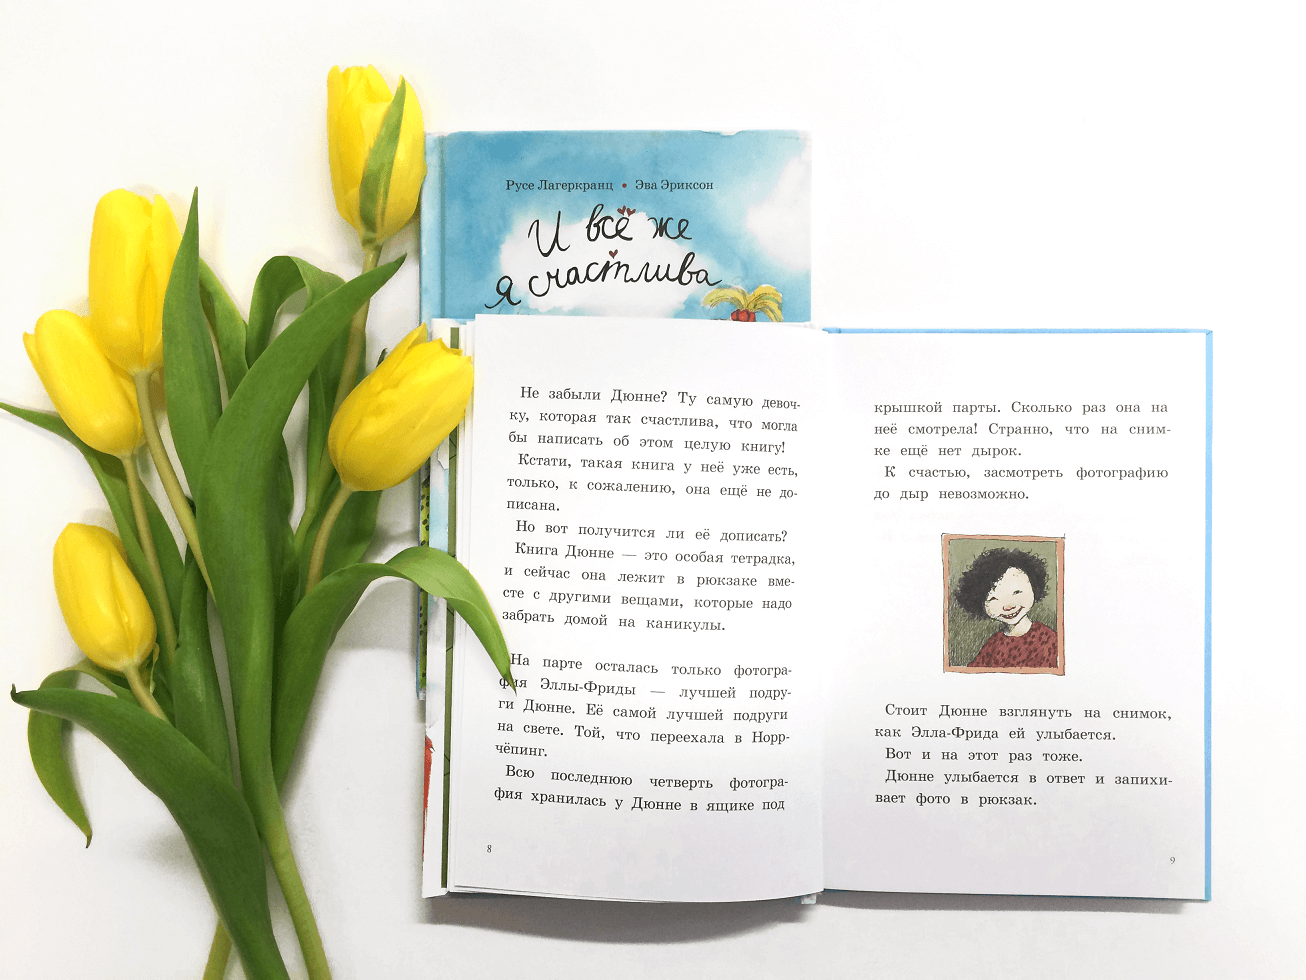 Русе Лагеркранц • Эва Эриксон
И всё же
я счастлива
Не забыли Дюнне? Ту самую девоч-
ку, которая так счастлива, что могла
бы написать об этом целую книгу!
Кстати, такая книга у неё уже есть,
только, к сожалению, она ещё не до-
писана.
Но вот получится ли её дописать?
Книга Дюнне — это особая тетрадка,
и сейчас она лежит в рюкзаке вме-
сте с другими вещами, которые надо
забрать домой на каникулы.
На парте осталась только фотогра-
фия Эллы-Фриды — лучшей подру-
ги Дюнне. Её самой лучшей подруги
на свете. Той, что переехала в Норр-
чёпинг.
Всю последнюю четверть фотогра-
фия хранилась у Дюнне в ящике под
8
крышкой парты. Сколько раз она на
неё смотрела! Странно, что на сним-
ке ещё нет дырок.
К счастью, засмотреть фотографию
до дыр невозможно.
Стоит Дюнне взглянуть на снимок,
как Элла-Фрида ей улыбается.
Вот и на этот раз тоже.
Дюнне улыбается в ответ и запихи-
вает фото в рюкзак.
9